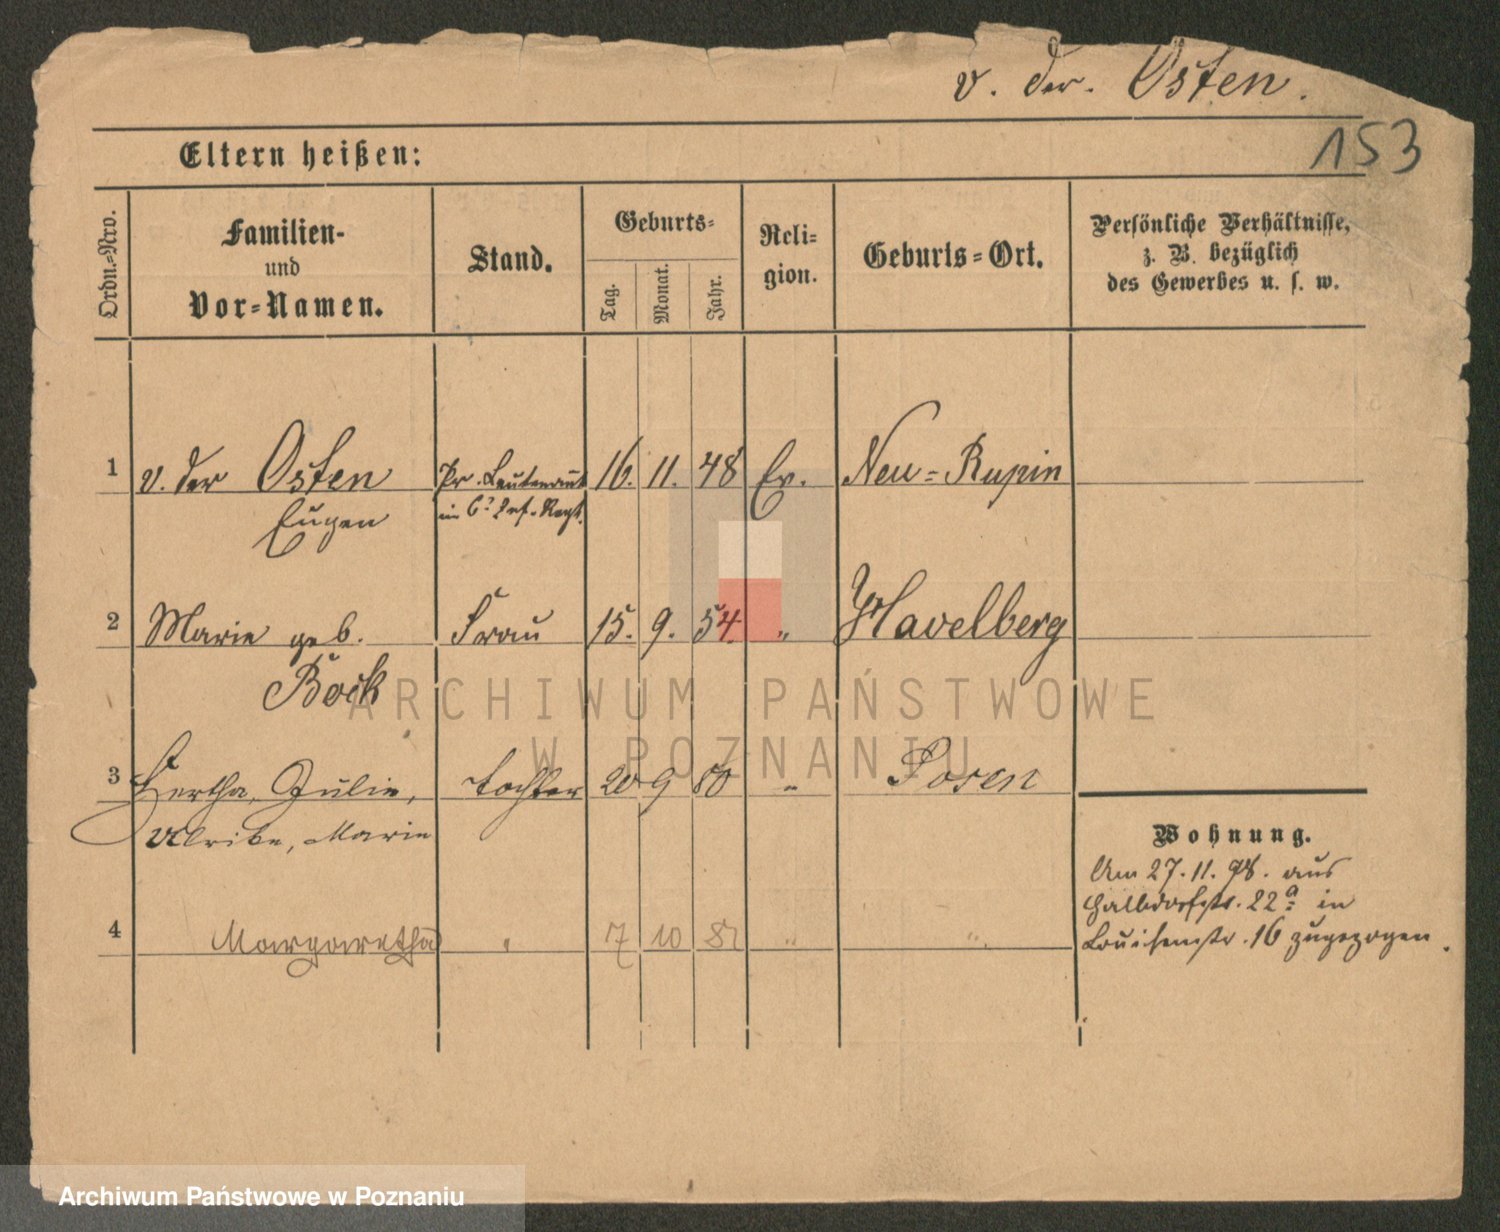 v. der. Osten.
153
Eltern heißen:
Ordn.=Nro.
Familien-
und
Vor=Namen.
Stand.
Geburts=
Tag.
Monat.
Jahr.
Reli=
gion.
Geburts=Ort.
Persönliche Verhältnisse,
z. B. bezüglich
des Gewerbes u. s. w.
1 v. der Osten Pr. Leutenant 16. 11. 48 Ev. Neu=Rupin
Eugen im 6t Inf.-Regt.
2 Marie geb. Frau 15. 9. 54. " Havelberg
Bock
3 Hertha, Julie, Tochter 20 9 80 " Posen
Ulrike, Marie
4 Margaretha " 7 10 82 " "
Wohnung.
Am 27. 11. aus
Halbdorfstr. 22a in
Louisenstr. 16 zugezogen.
ARCHIWUM PAŃSTWOWE
W POZNANIU
Archiwum Państwowe w Poznaniu